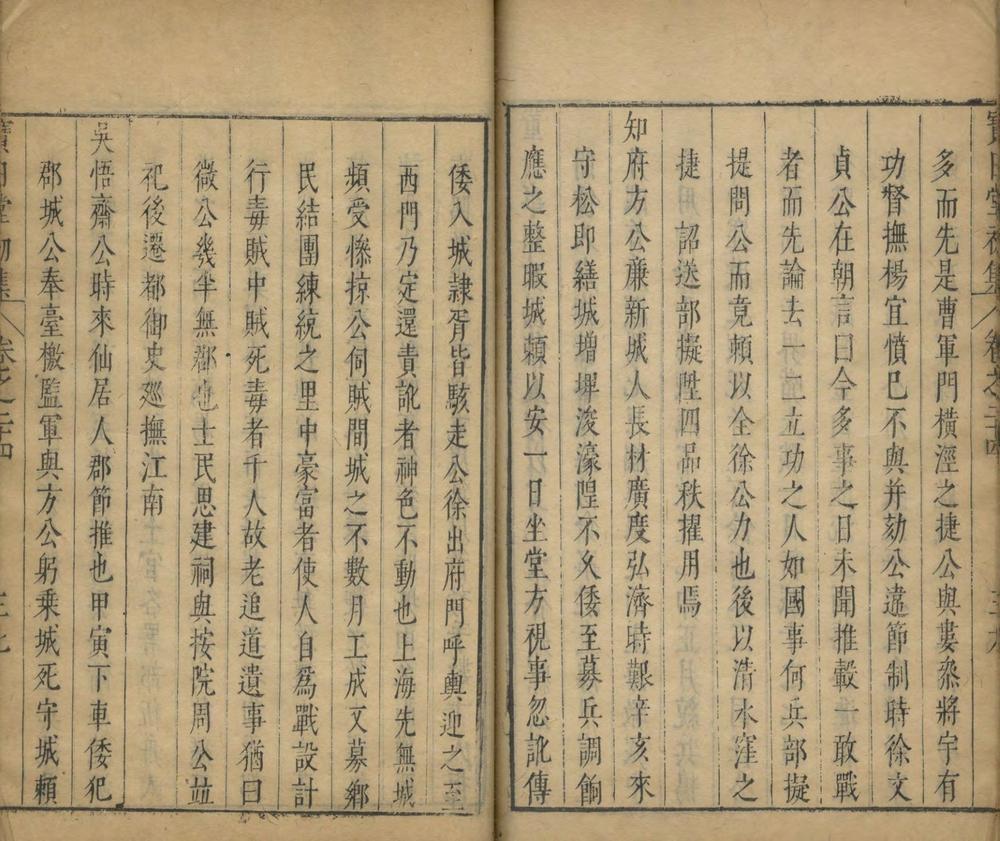 多而先是曹軍門橫涇之捷公與婁叅將宇有
功督撫楊宜憤已不與并劾公違節制時徐文
貞公在朝言曰今多事之日未聞推轂一敢戰
者而先論去一二立功之人如國事何兵部擬
提問公而竟賴以全徐公力也後以清水窪之
捷用 詔送部擬陞四品秩擢用焉
知府方公亷新城人長材廣度弘濟時艱辛亥來
守松即繕城增埤浚濠隍不久倭至募兵調餉
應之整暇城頼以安一日坐堂方視事忽訛傳
倭入城隷胥皆駭走公徐出府門呼輿迎之至
西門乃定還責訛者神色不動也上海先無城
頻受慘掠公伺賊間城之不數月工成又募鄉
民結團練統之里中豪富者使人自爲戰設計
行毒賊中賊死毒者千人故老追道遺事猶曰
微公幾半無郡也士民思建祠與按院周公竝
祀後遷都御史廵撫江南
吳悟齋公時來仙居人郡節推也甲寅下車倭犯
郡城公奉臺檄監軍與方公躬乗城死守城賴
卷之二十四